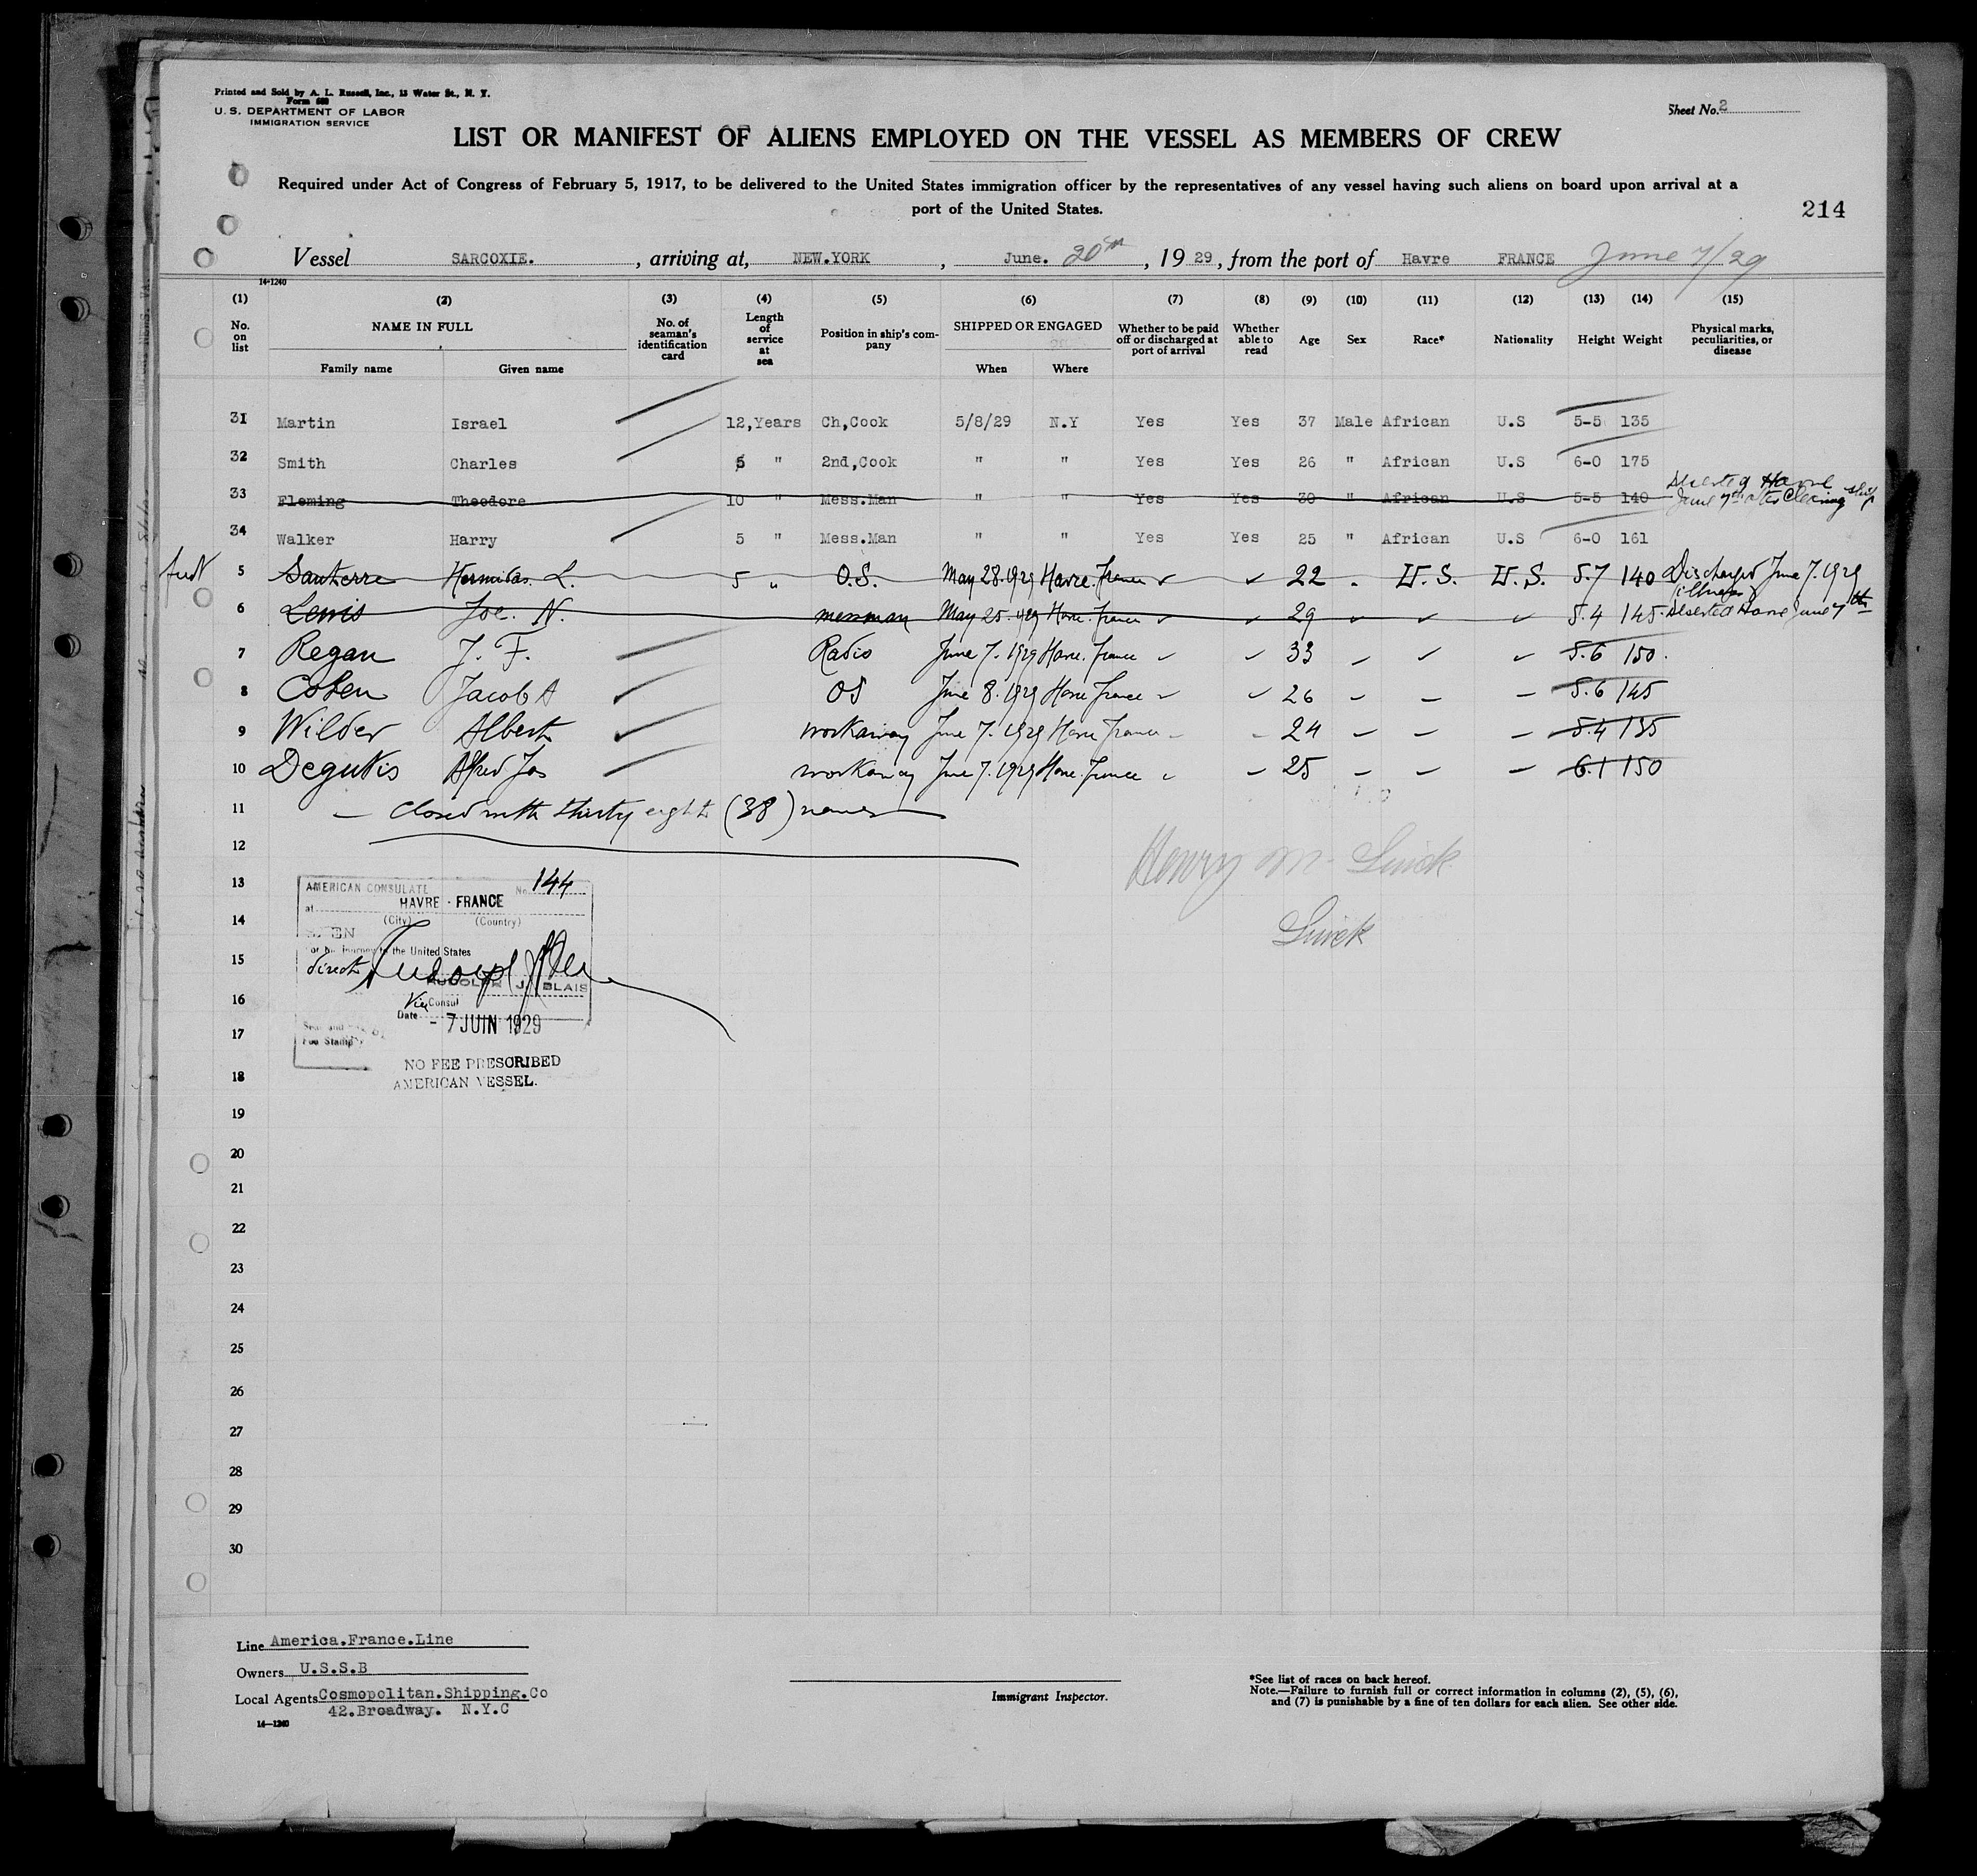 Printed and Sold by A. L. Russell, Inc., 13 Water St., N. Y.
Form 680
U. S. DEPARTMENT OF LABOR
IMMIGRATION SERVICE
Sheet No. 2
LIST OR MANIFEST OF ALIENS EMPLOYED ON THE VESSEL AS MEMBERS OF CREW
Required under Act of Congress of February 5, 1917, to be delivered to the United States immigration officer by the representatives of any vessel having such aliens on board upon arrival at a
port of the United States.
214
Vessel SARCOXIE. , arriving at, NEW.YORK , June. 20th , 19 29 , from the port of Havre FRANCE June 7/29
14-1240
(1) (2) (3) (4) (5) (6) (7) (8) (9) (10) (11) (12) (13) (14) (15)
No. on list NAME IN FULL No. of seaman's identification card Length of service at sea Position in ship's company SHIPPED OR ENGAGED Whether to be paid off or discharged at port of arrival Whether able to read Age Sex Race* Nationality Height Weight Physical marks, peculiarities, or disease
Family name Given name When Where
31 Martin Israel 12,Years Ch,Cook 5/8/29 N.Y Yes Yes 37 Male African U.S 5-5 135
32 Smith Charles 5 " 2nd,Cook " " Yes Yes 26 " African U.S 6-0 175
33 Fleming Theodore 10 " Mess.Man " " Yes Yes 30 " African U.S 5-5 140 Deserted Havre June 7th after Clearing ship
34 Walker Harry 5 " Mess.Man " " Yes Yes 25 " African U.S 6-0 161
5 Santerre Hermidas. L. 5 " O.S. May 28.1929 Havre.France ✓ ✓ 22 " U.S. U.S. 5.7 140 Discharged June 7.1929 illness
6 Lewis Joe. N. messman May 25.1929 Havre.France ✓ ✓ 29 ✓ ✓ ✓ 5.4 145 Deserted Havre June 7th
7 Regan J. F. Radio June 7.1929 Havre.France ✓ ✓ 33 ✓ ✓ ✓ 5.6 150.
8 Cohen Jacob A OS June 8.1929 Havre France ✓ ✓ 26 – – – 5.6 145
9 Wilder Albert workaway June 7.1929 Havre France – – 24 – – – 5.4 135
10 Degutis Alfred Jos workaway June 7.1929 Havre.France ✓ – 25 – – – 6.1 150
11 — Closed with thirty eight (38) names
12
Henry M. Luick
13
Luick
14
15
16
17
18
19
20
21
22
23
24
25
26
27
28
29
30
AMERICAN CONSULATE No. 144
at HAVRE - FRANCE
(City) (Country)
SEEN
For the journey to the United States
direct
RUDOLPH J. BLAIS
Vice Consul
Date - 7 JUIN 1929
Seal and
Fee Stamp
NO FEE PRESCRIBED
AMERICAN VESSEL.
Line America.France.Line
Owners U.S.S.B
Local Agents Cosmopolitan.Shipping.Co
42.Broadway. N.Y.C
14—1240
Immigrant Inspector.
*See list of races on back hereof.
Note.—Failure to furnish full or correct information in columns (2), (5), (6),
and (7) is punishable by a fine of ten dollars for each alien. See other side.